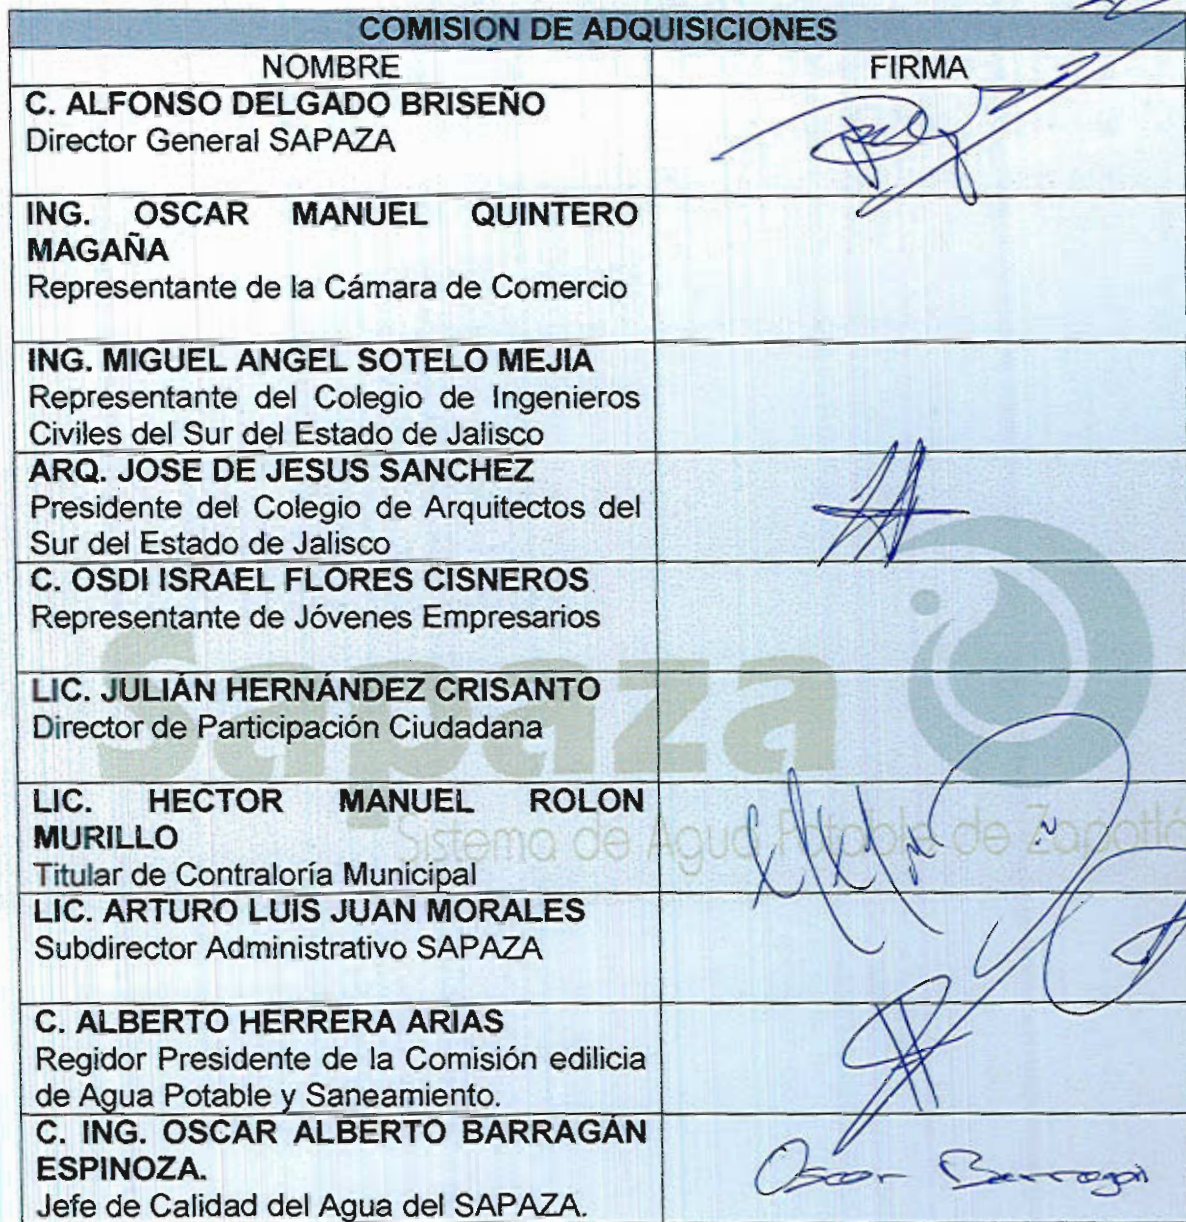 COMISION DE ADQUISICIONES
NOMBRE FIRMA
C. ALFONSO DELGADO BRISEÑO
Director General SAPAZA
ING. OSCAR MANUEL QUINTERO
MAGAÑA
Representante de la Cámara de Comercio
ING. MIGUEL ANGEL SOTELO MEJIA
Representante del Colegio de Ingenieros
Civiles del Sur del Estado de Jalisco
ARQ. JOSE DE JESUS SANCHEZ
Presidente del Colegio de Arquitectos del
Sur del Estado de Jalisco
C. OSDI ISRAEL FLORES CISNEROS
Representante de Jóvenes Empresarios
Sapaza
LIC. JULIÁN HERNÁNDEZ CRISANTO
Director de Participación Ciudadana
LIC. HECTOR MANUEL ROLON
MURILLO
Sistema de Agua Potable de Zapotlá
Titular de Contraloría Municipal
LIC. ARTURO LUIS JUAN MORALES
Subdirector Administrativo SAPAZA
C. ALBERTO HERRERA ARIAS
Regidor Presidente de la Comisión edilicia
de Agua Potable y Saneamiento.
C. ING. OSCAR ALBERTO BARRAGÁN
ESPINOZA.
Oscar Barragán
Jefe de Calidad del Agua del SAPAZA.